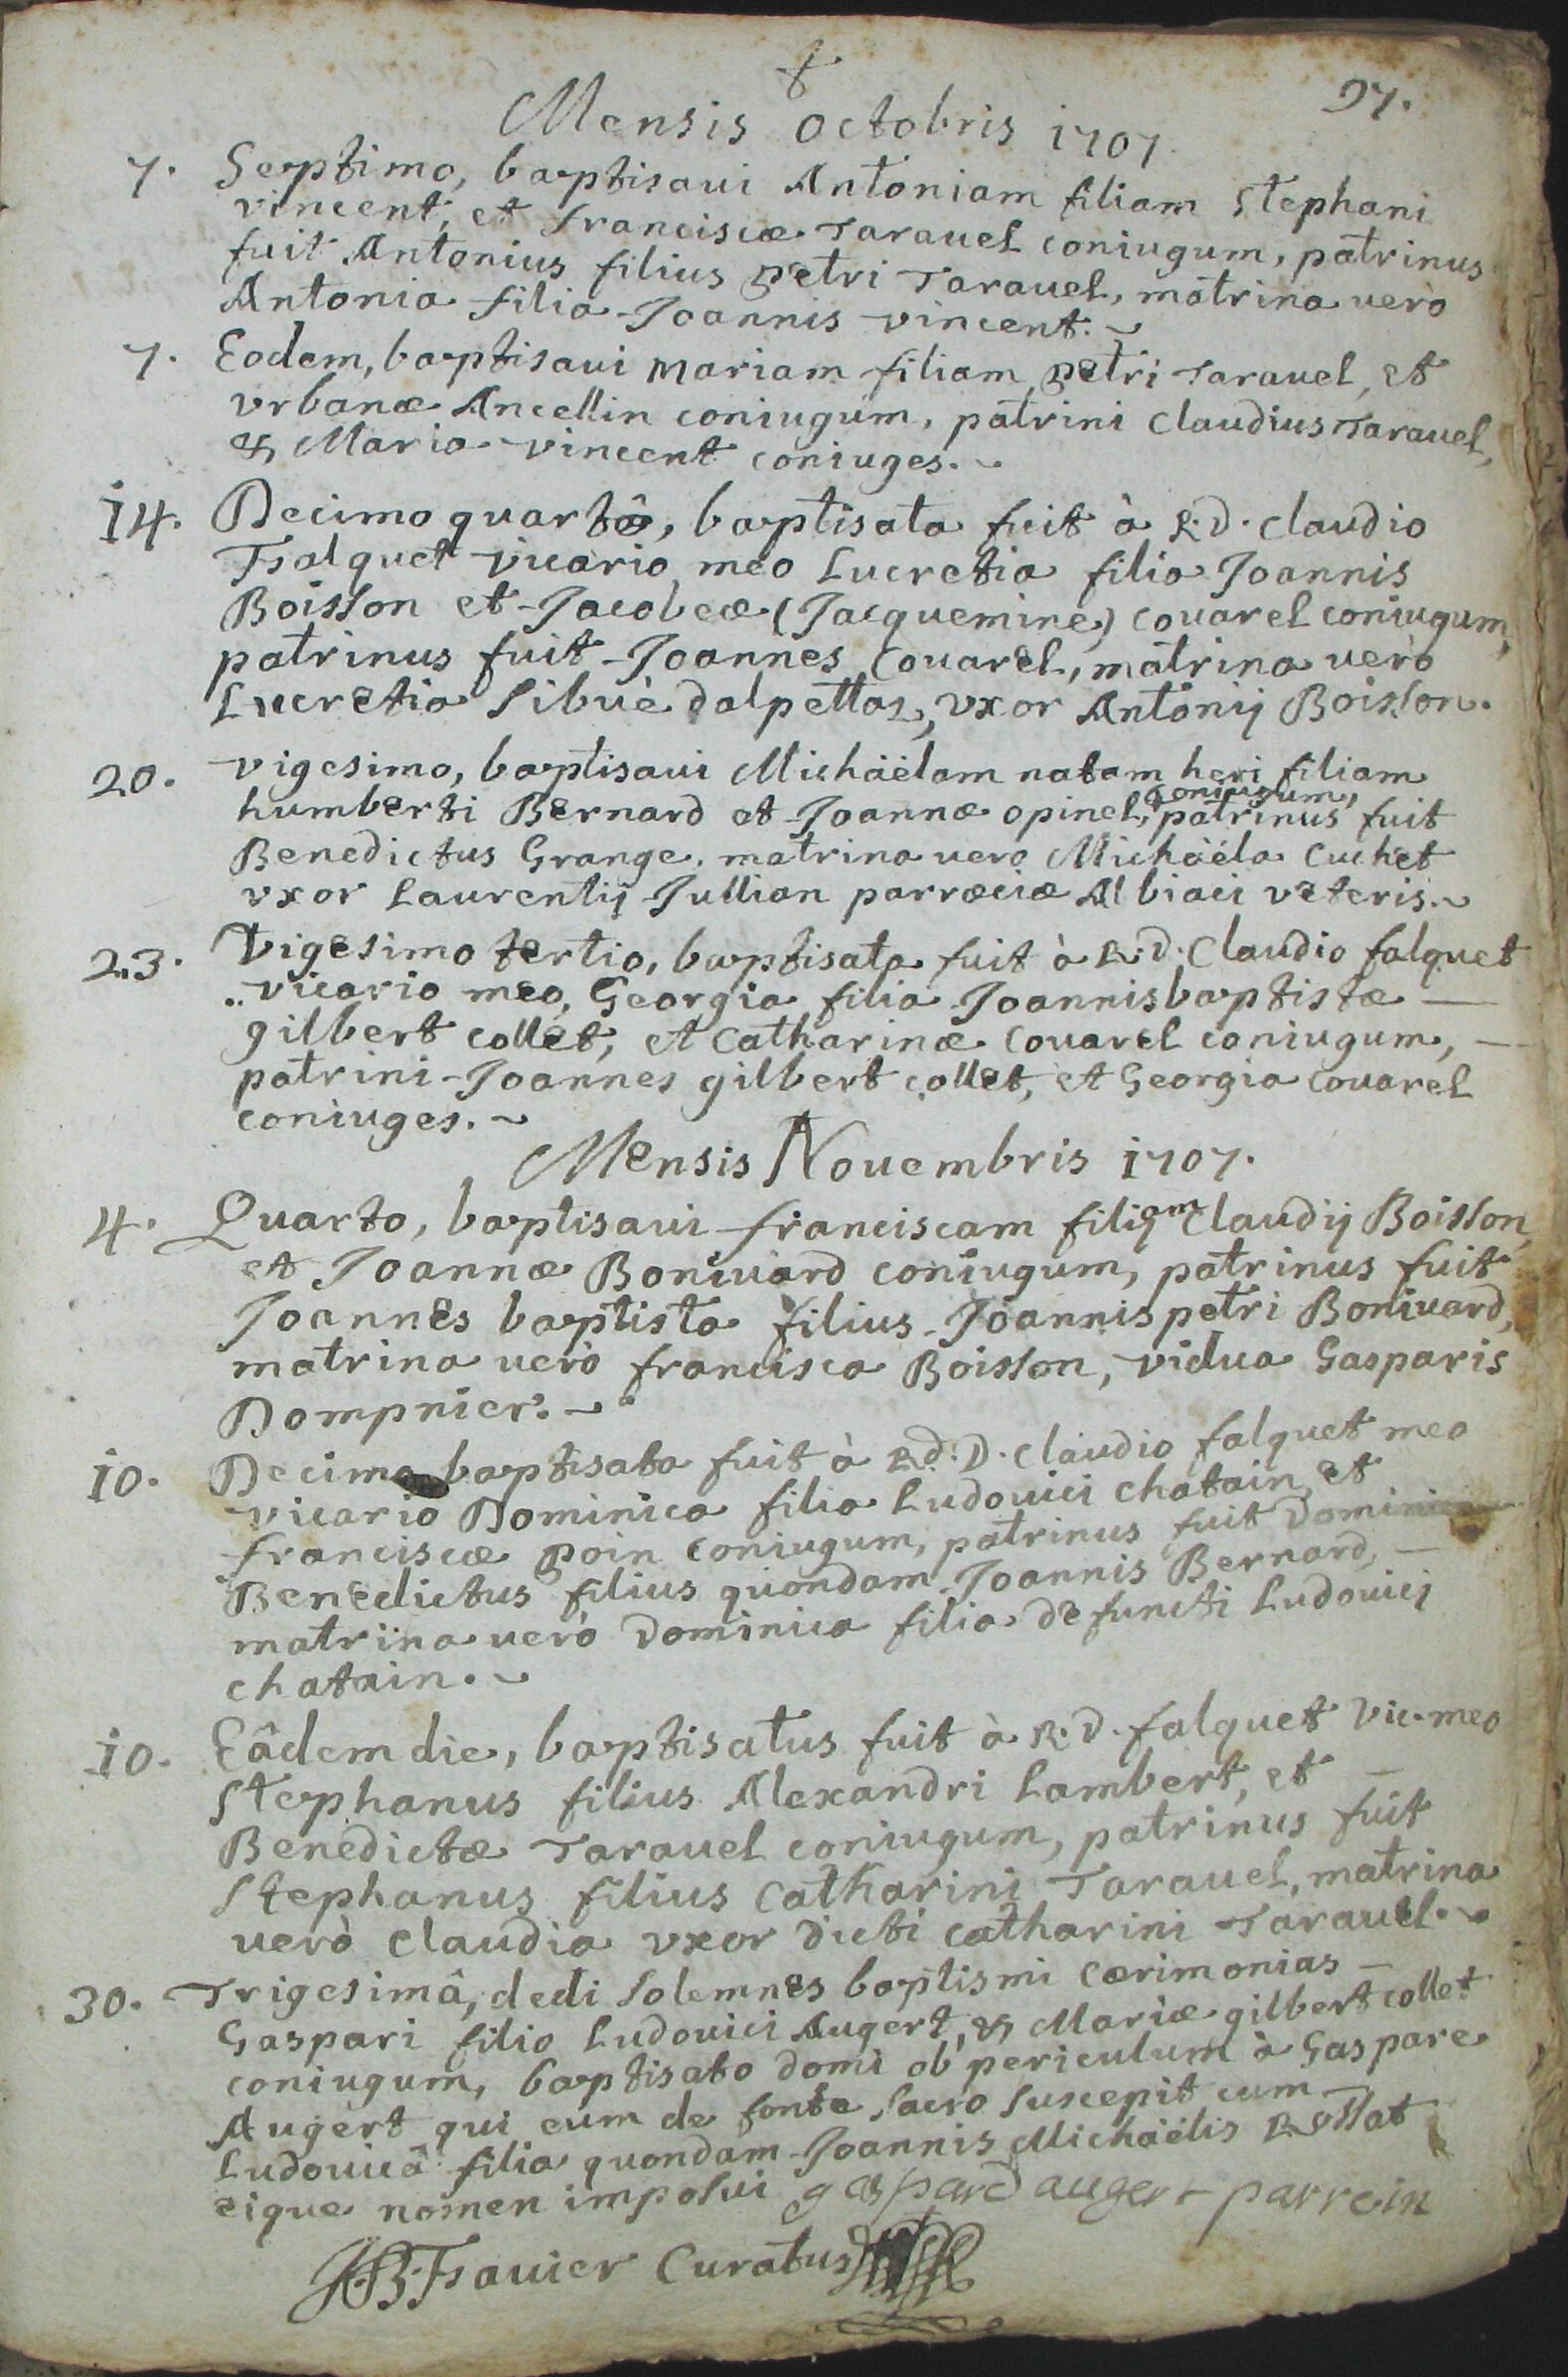 97.
Mensis octobris 1707
7. Septimo, baptisaui Antoniam filiam Stephani
vincent, et franciscæ Tarauel coniugum, patrinus
fuit Antonius filius petri Tarauel, matrina uerò
Antonia filia Joannis vincent.
7. Eodem, baptisaui mariam filiam petri Tarauel, et
vrbanæ Ancellin coniugum, patrini Claudius Tarauel,
& Maria vincent coniuges.
14. Decimo quarto, baptisata fuit à R.D. Claudio
Falquet vicario meo Lucretia filia Joannis
Boisson et Jacobeæ (Jacquemine) couarel coniugum,
patrinus fuit Joannes Couarel, matrina uerò
Lucretia Sibuè dalpettas, vxor Antonij Boisson.
20. vigesimo, baptisaui Michäelam natam heri filiam
humberti Bernard et Joannæ opinel, coniugum, patrinus fuit
Benedictus Grange, matrina uero Michäela Cuchet
vxor Laurentij Jullian parræciæ Albiaci veteris.
23. Vigesimo tertio, baptisata fuit à R.D. Claudio falquet
vicario meo, Georgia filia Joannisbaptistæ —
gilbert collet, et Catharinæ Couarel coniugum, —
patrini Joannes gilbert collet, et Georgia Couarel
coniuges.
Mensis Nouembris 1707.
4. Quarto, baptisaui franciscam filiam Claudij Boisson,
et Joannæ Boniuard coniugum, patrinus fuit
Joannes baptista filius Joannispetri Boniuard,
matrina uerò francisca Boisson, vidua Gasparis
Dompnier.
10. Decimo baptisata fuit à Rd. D. Claudio falquet meo
vicario Dominica filia Ludouici chatain, et
franciscæ poin coniugum, patrinus fuit
Benedictus filius quondam Joannis Bernard, —
matrina uerò Dominica filia defuncti Ludouici
chatain.
10. Eâdem die, baptisatus fuit à R.D. falquet vic. meo
Stephanus filius Alexandri Lambert, et —
Benedictæ Tarauel coniugum, patrinus fuit
Stephanus filius Catharini Tarauel, matrina
uerò Claudia vxor dicti catharini Tarauel.
30. Trigesimâ, dedi solemnes baptismi cærimonias —
Gaspari filio Ludouici Augert, & Mariæ gilbert collet
coniugum, baptisato domi ob periculum à Gaspare
Augert qui eum de fonte sacro suscepit cum —
Ludouicâ filia quondam Joannis Michäelis Rossat
eique nomen imposui gaspard auger parrein
JB. Fauier Curatus